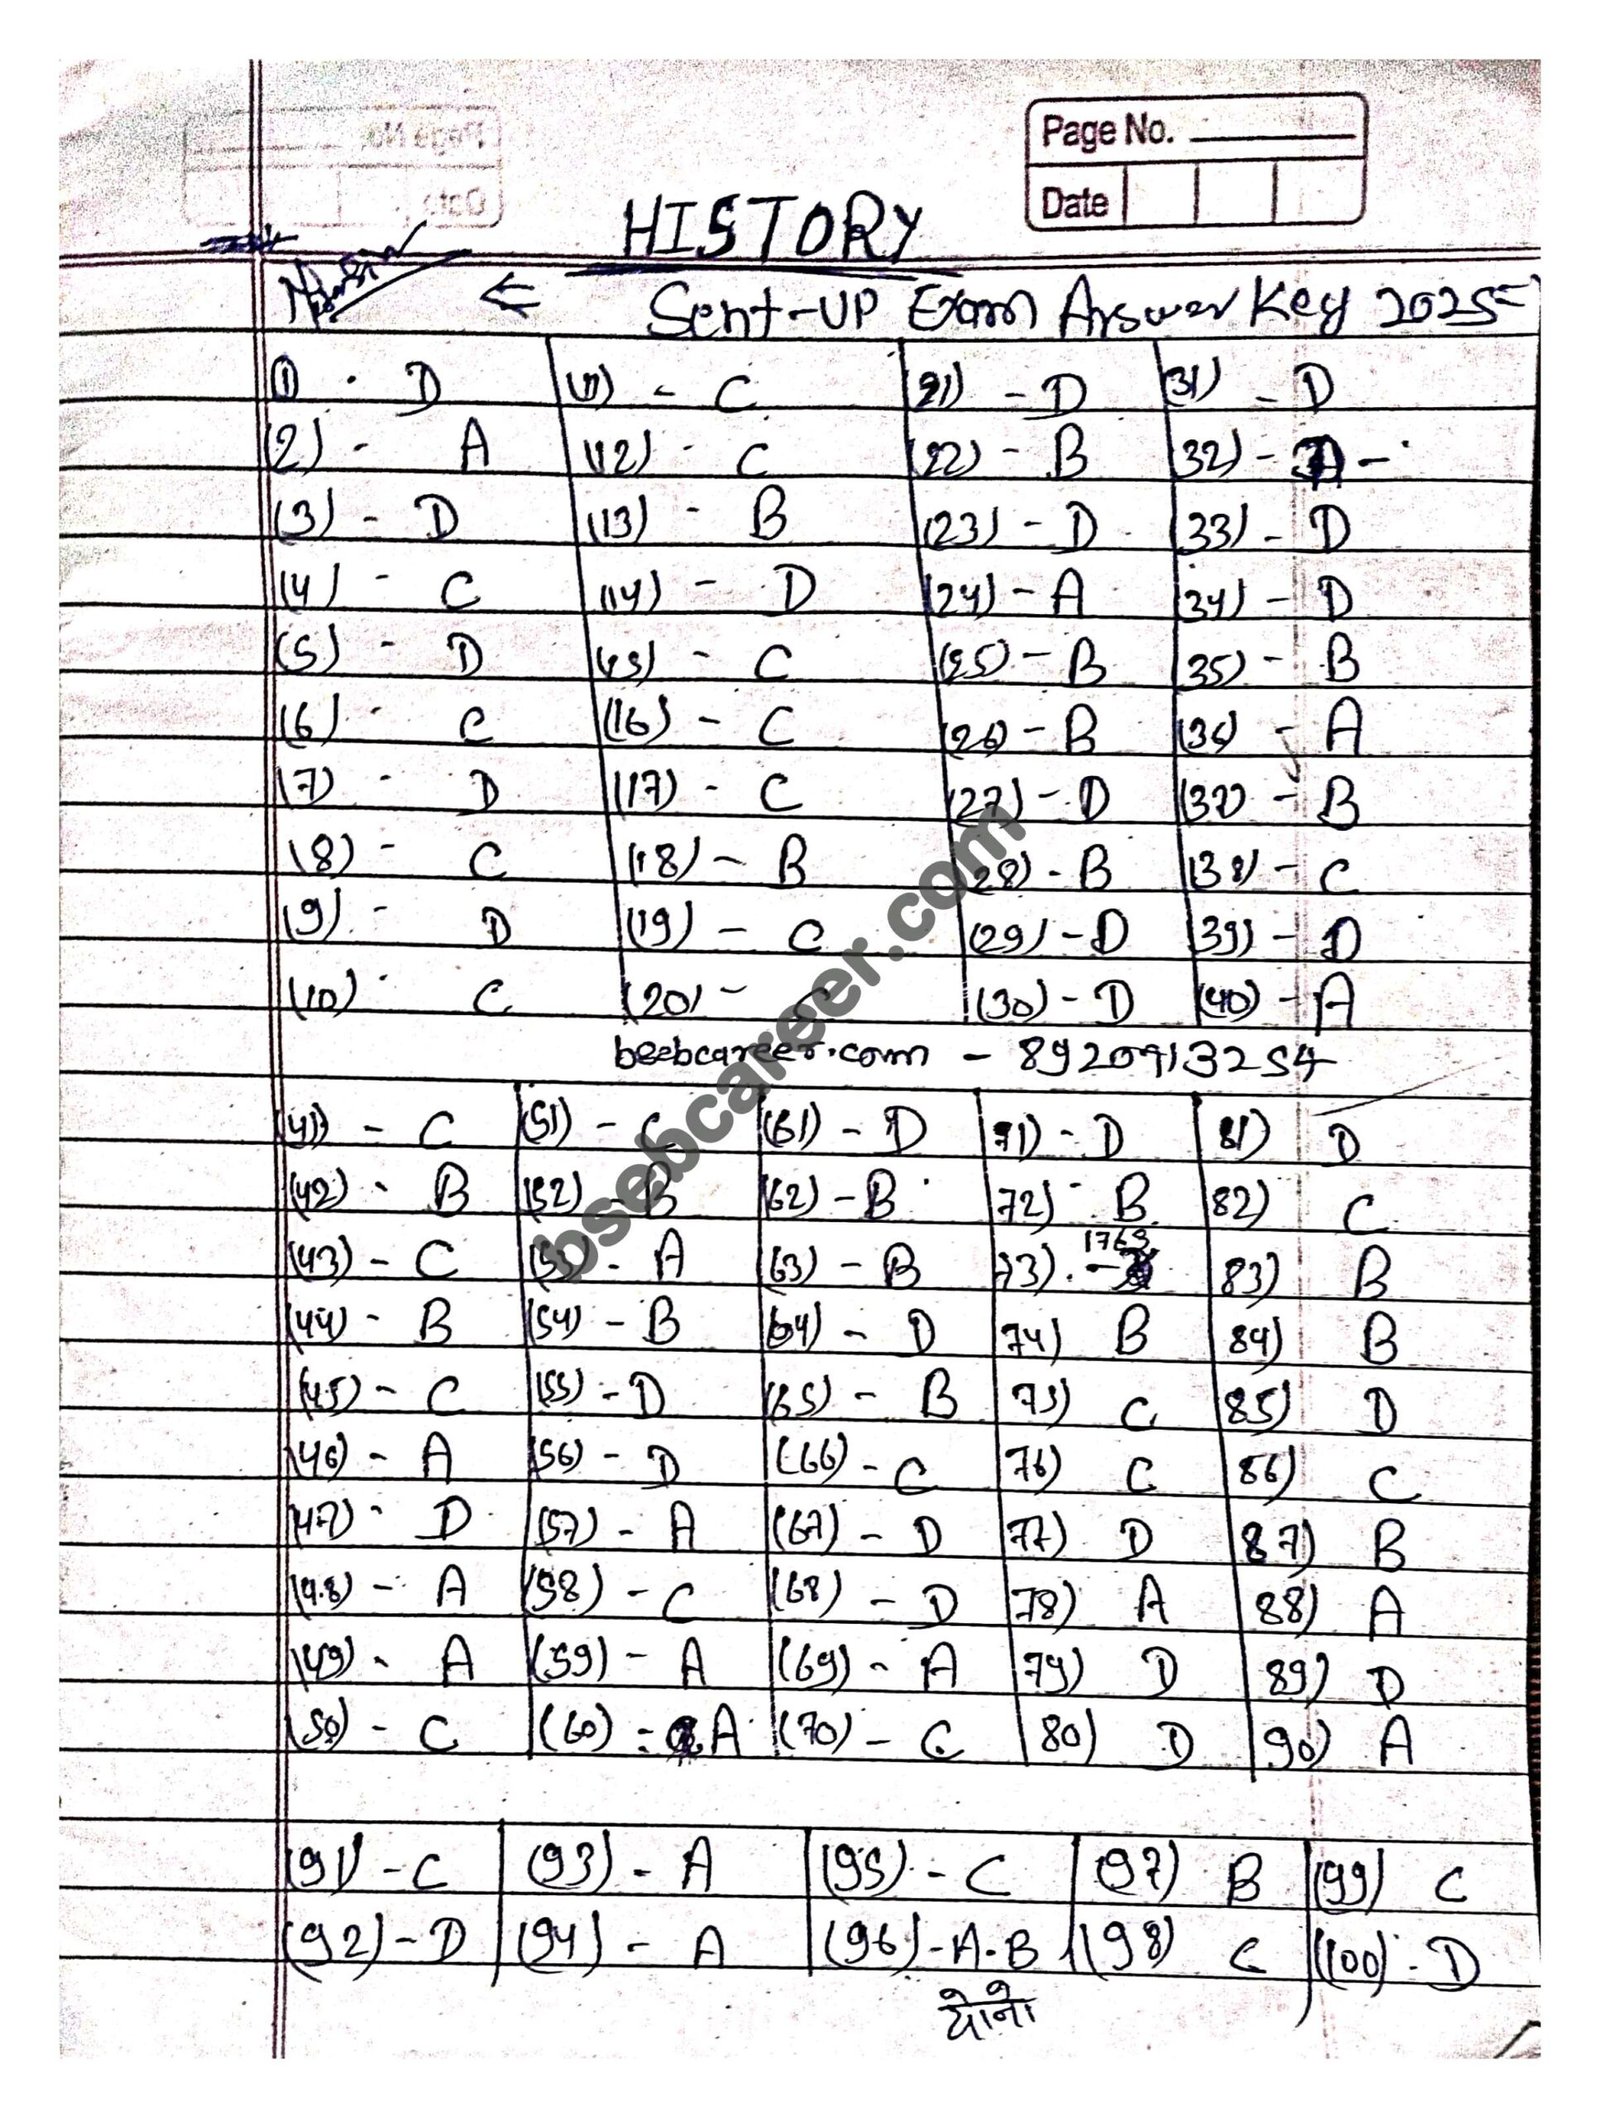 Page No.
Date
HISTORY
⇐ Sent-UP Exam Answer Key 2025
(1) - D (11) - C (21) - D (31) - D
(2) - A (12) - C (22) - B (32) - A -
(3) - D (13) - B (23) - D (33) - D
(4) - C (14) - D (24) - A (34) - D
(5) - D (15) - C (25) - B (35) - B
(6) - C (16) - C (26) - B (36) - A
(7) - D (17) - C (27) - D (37) - B
(8) - C (18) - B (28) - B (38) - C
(9) - D (19) - C (29) - D (39) - D
(10) - C (20) - C (30) - D (40) - A
bsebcareer.com - 8920913254
(41) - C (51) - C (61) - D 71) - D 81) D
(42) - B (52) - B (62) - B 72) - B 82) C
(43) - C (53) - A (63) - B 73) - 1763 83) B
(44) - B (54) - B (64) - D 74) B 84) B
(45) - C (55) - D (65) - B 75) C 85) D
(46) - A (56) - D (66) - C 76) C 86) C
(47) - D (57) - A (67) - D 77) D 87) B
(48) - A (58) - C (68) - D 78) A 88) A
(49) - A (59) - A (69) - A 79) D 89) D
(50) - C (60) - A (70) - C 80) D 90) A
(91) - C (93) - A (95) - C (97) B (99) C
(92) - D (94) - A (96) - A-B (98) C (100) - D
bsebcareer.com